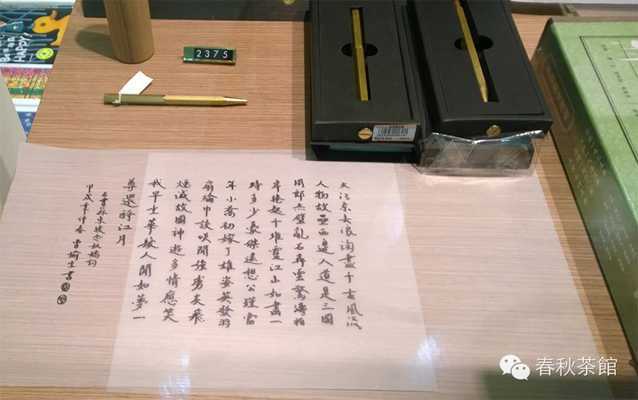 2375
大江東去浪淘盡千古風流
人物故壘西邊人道是三國
周郎赤壁亂石崩雲驚濤拍
岸捲起千堆雪江山如畫一
時多少豪傑遙想公瑾當
年小喬初嫁了雄姿英發羽
扇綸巾談笑間強虜灰飛
煙滅故國神遊多情應笑
我早生華髮人間如夢一
尊還酹江月
右書蘇東坡念奴嬌詞
甲戌年仲春
春秋茶館